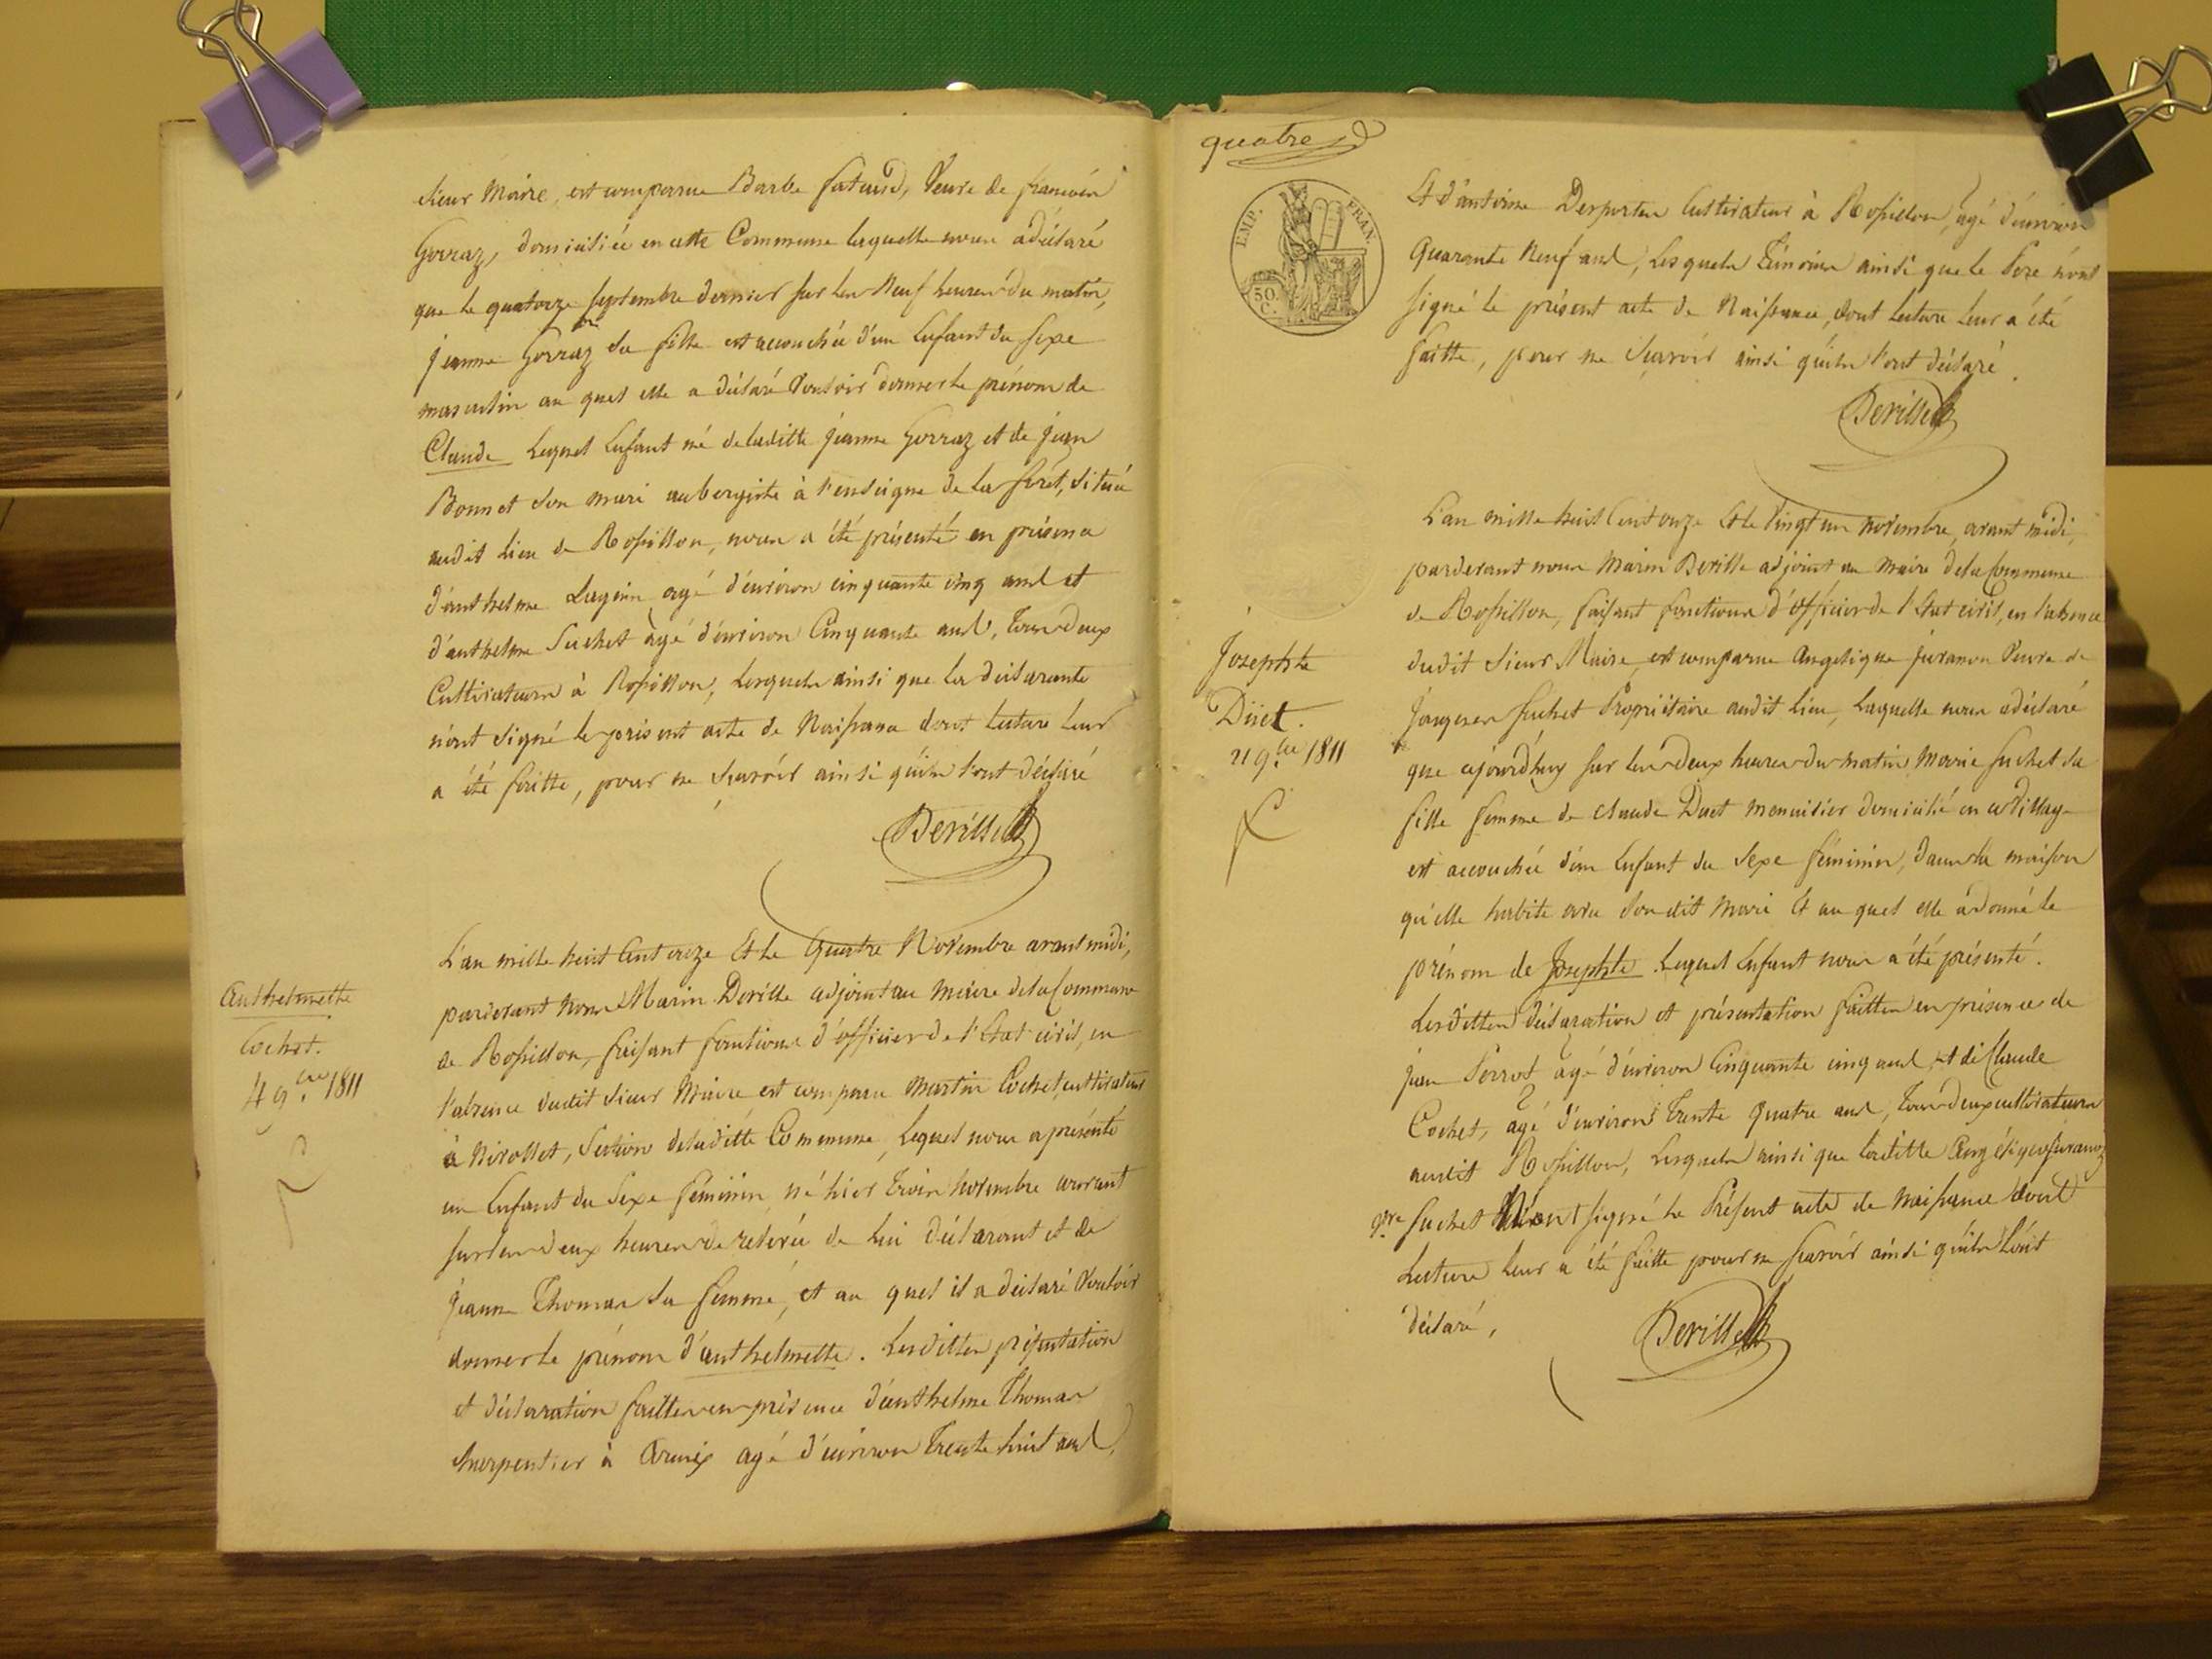 Sieur Maire, est comparue Barbe fataud, Veuve de francois
Gorraz, domiciliée en cette Commune laquelle nous a déclaré
que le quatorze septembre dernier sur les Neuf heures du matin,
jeanne Gorraz sa fille est accouchée d'un Enfant du sexe
masculin au quel elle a déclaré Vouloir donner le prénom de
Claude Lequel Enfant né de laditte jeanne Gorraz et de jean
Bonnet son mari aubergiste à l'enseigne de la forêt, située
audit lieu de Rossillon, nous a été présenté en présence
d'anthelme agé d'environ cinquante cinq ans et
d'anthelme Suchet agé d'environ Cinquante ans, Tous deux
Cultivateurs à Rossillon, Lesquels ainsi que la déclarante
n'ont signé le présent acte de Naissance dont lecture leur
a été faitte, pour ne Scavoir ainsi qu'ils l'ont déclaré
Deville
Anthelmette
Cochet.
4 9.bre 1811
L'an mille huit Cent onze Et le Quatre Novembre avant midi,
pardevant nous Marin Deville adjoint au Maire de la Commune
de Rossillon, faisant fonctions d'officier de l'Etat civil, en
l'absence dudit Sieur Maire est comparu Martin Cochet, cultivateur
à Virollet, Section de laditte Commune, Lequel nous a présenté
un Enfant du Sexe féminin, né hier Trois Novembre courant
sur les deux heures de relevée de Lui déclarant et de
Jeanne Thomas sa femme, et au quel il a déclaré Vouloir
donner le prénom d'anthelmette. Lesdittes présentation
et déclaration faittes en présence d'anthelme Thomas
Charpentier à Armix agé d'environ Trente huit ans,
quatre
EMP. FRAN.
50.
C.
Et d'antoine Desportes Cultivateur à Rossillon, agé d'environ
Quarante Neuf ans, Lesquels Témoins ainsi que le Pere n'ont
signé le présent acte de Naissance, dont lecture leur a été
faitte, pour ne Scavoir ainsi qu'ils l'ont déclaré.
Deville
Josephte
Düet.
21 9.bre 1811
L'an mille huit Cent onze Et le Vingt un novembre, avant midi,
pardevant nous Marin Deville adjoint au Maire de la Commune
de Rossillon, faisant fonctions d'Officier de l'Etat civil, en l'absence
dudit Sieur Maire, est comparue Angelique juranon Veuve de
Jacques Suchet Propriétaire audit lieu, Laquelle nous a déclaré
que cejourd'huy sur les deux heures du matin Marie Suchet sa
fille femme de claude Duet menuisier domicilié en ce Village
est accouchée d'un Enfant du Sexe féminin, dans la maison
qu'elle habite avec Son dit Mari Et au quel elle a donné le
prénom de Josephte. Lequel Enfant nous a été présenté.
Lesdittes déclaration et présentation faittes en présence de
jean Perrot agé d'environ Cinquante cinq ans, et de Claude
Cochet, agé d'environ Trente Quatre ans, Tous deux cultivateurs
audit Rossillon, Lesquels ainsi que laditte Angélique juranoz
Suchet N'ont signé le Présent acte de Naissance dont
Lecture leur a été faitte pour ne Scavoir ainsi qu'ils l'ont
déclaré,
Deville